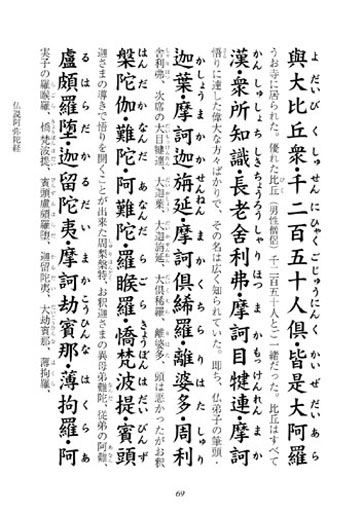 よ だい び く しゅ せん に ひゃく ご じゅうにん く かい ぜ だい あ ら
與大比丘衆・千二百五十人倶・皆是大阿羅
うお寺に居られた。優れた比丘（男性僧侶）千二百五十人とご一緒だった。比丘はすべて
かん しゅ しょ ち しき ちょうろう しゃ り ほつ ま か もっけんれん ま か
漢・衆所知識・長老舎利弗・摩訶目犍連・摩訶
悟りに達した偉大な方々ばかりで、その名は広く知られていた。即ち、仏弟子の筆頭・
か しょう ま か か せんねん ま か く ち ら り は た しゅ り
迦葉・摩訶迦旃延・摩訶倶絺羅・離婆多・周利
舎利弗、次席の大目犍連、大迦葉、大迦旃延、大倶絺羅、離婆多、頭は悪かったがお釈
はん だ か なん だ あ なん だ ら ご ら きょうぼん は だい びん ず
槃陀伽・難陀・阿難陀・羅睺羅・憍梵波提・賓頭
迦さまの導きで悟りを開くことが出来た周梨槃特、お釈迦さまの異母弟難陀、従弟の阿難、
る は ら だ か る だ い ま か こうひん な はく ら あ
盧頗羅堕・迦留陀夷・摩訶劫賓那・薄拘羅・阿
実子の羅睺羅、憍梵波提、賓頭盧頗羅堕、迦留陀夷、大劫賓那、薄拘羅、
仏説阿弥陀経
69